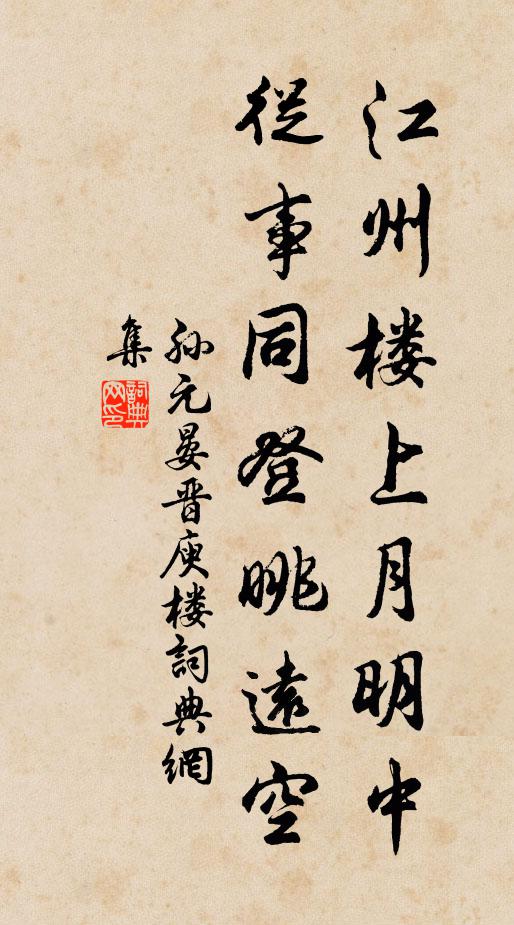 江州楼上月明中
從事同登眺遠空
孙元晏晋庾楼詞典網
集
詞典网印